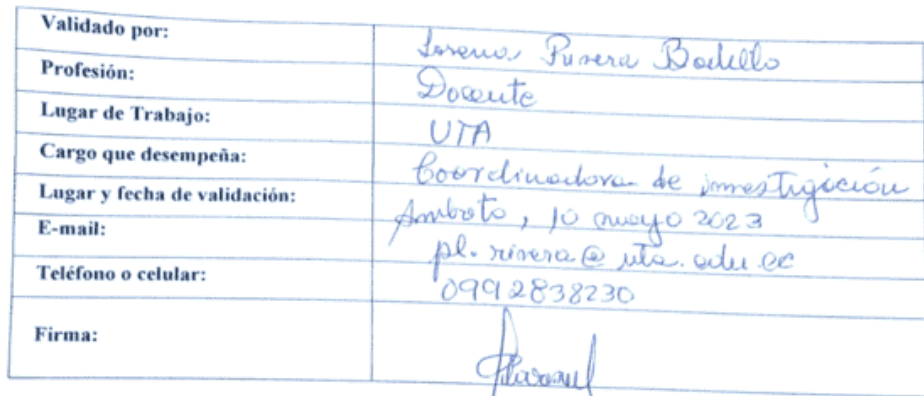 Validado por: Lorena Rivera Badillo
Profesión: Docente
Lugar de Trabajo: UTA
Cargo que desempeña: Coordinadora de investigación
Lugar y fecha de validación: Ambato, 10 mayo 2023
E-mail: pl.rivera@uta.edu.ec
Teléfono o celular: 0992838230
Firma: